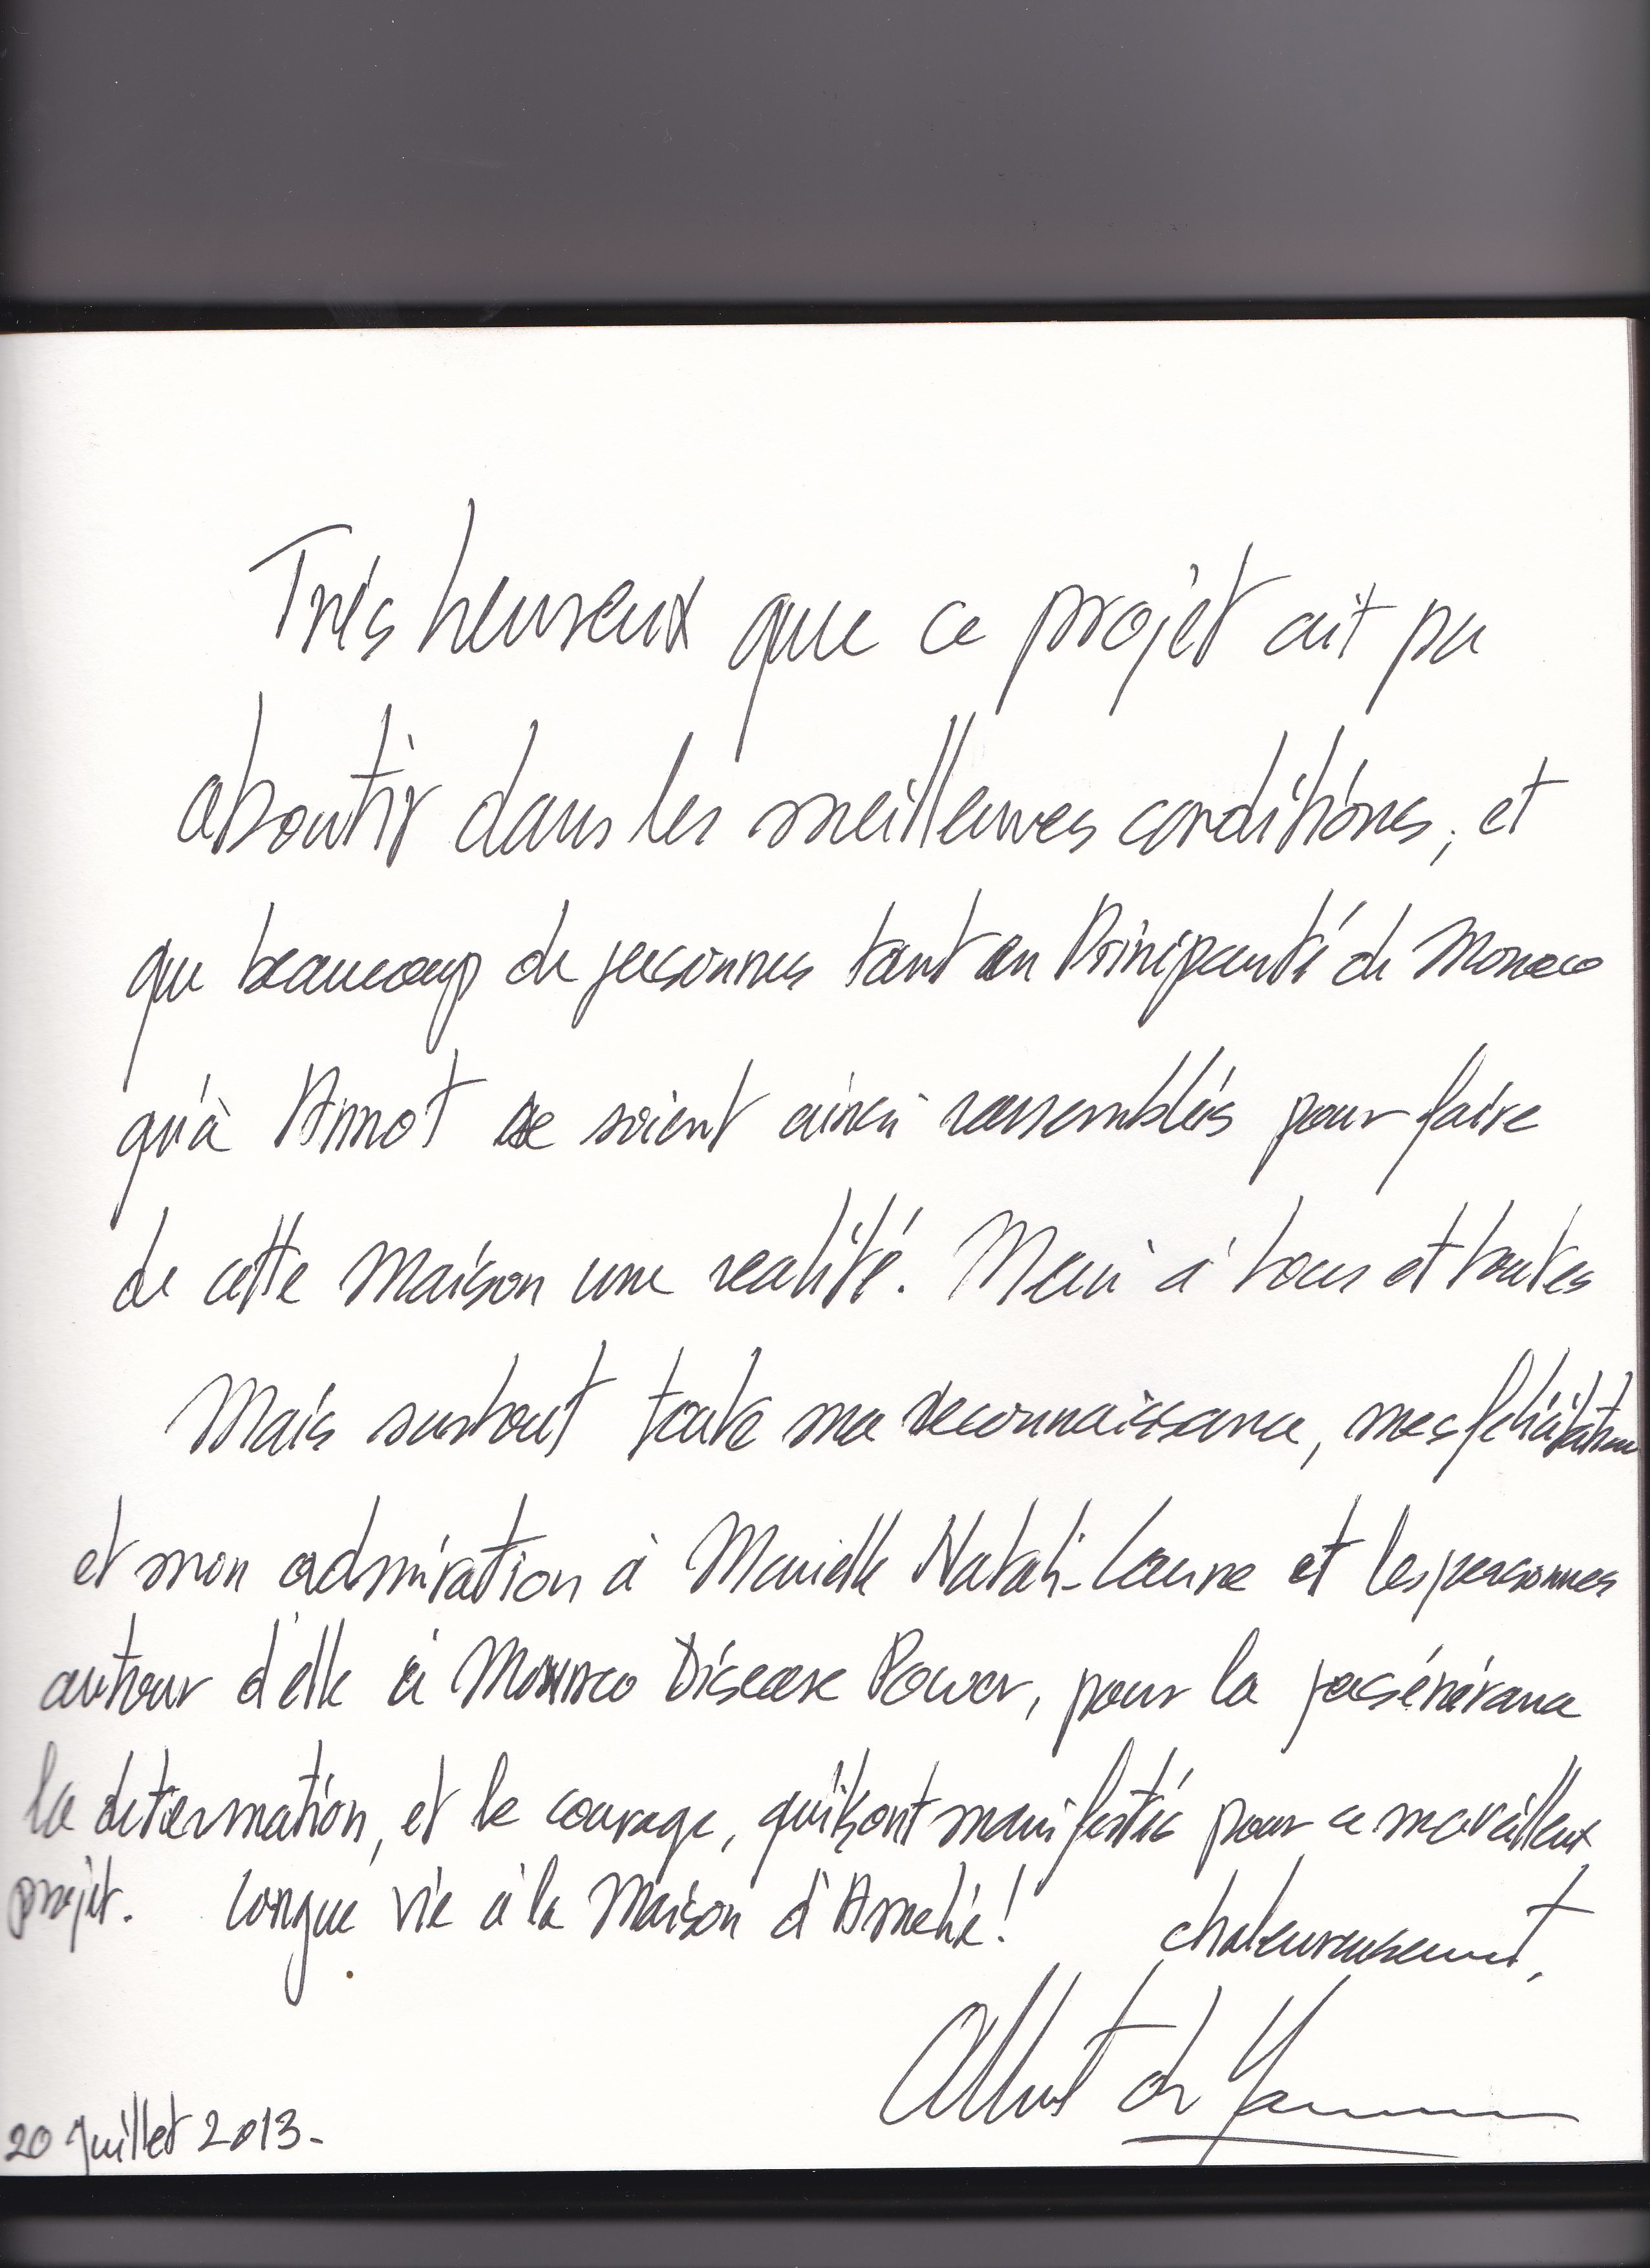 Très heureux que ce projet ait pu
aboutir dans les meilleures conditions, et
que beaucoup de personnes tant en Principauté de Monaco
qu'à Annot se soient ainsi rassemblés pour faire
de cette Maison une realité. Merci à tous et toutes
Mais surtout toute ma reconnaissance, mes félicitations
et mon admiration à Marielle Natali-Laure et les personnes
autour d'elle à Monaco Disease Power, pour la persévérance
la determation, et le courage, qu'ils ont manifestés pour ce merveilleux
projet. Longue vie à la Maison d'Amélie! chaleureusement,
Albert de Monaco
20 Juillet 2013.